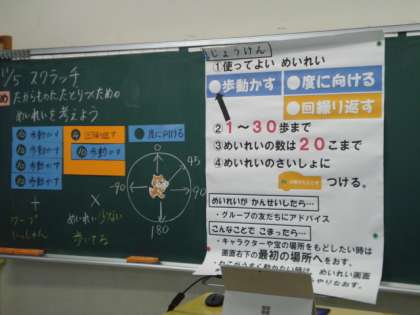 11/5 スクラッチ
め
たからものにたどりつくための
めいれいを考えよう
10 歩動かす
10 歩動かす
10 歩動かす
10 歩動かす
4 回繰り返す
10 歩動かす
度に向ける
0
45
-90
90
180
+
×
ワープ
めいれい少ない
歩いてる
じょうけん
①使ってよい めいれい
歩動かす
度に向ける
回繰り返す
②1~30歩まで
③めいれいの数は20こまで
④めいれいのさいしょに
つける。
めいれいが かんせいしたら…
・グループの友だちにアドバイス
こんなことで こまったら…
・キャラクターや宝の場所をもどしたい時は
画面右下の最初の場所へをおす。